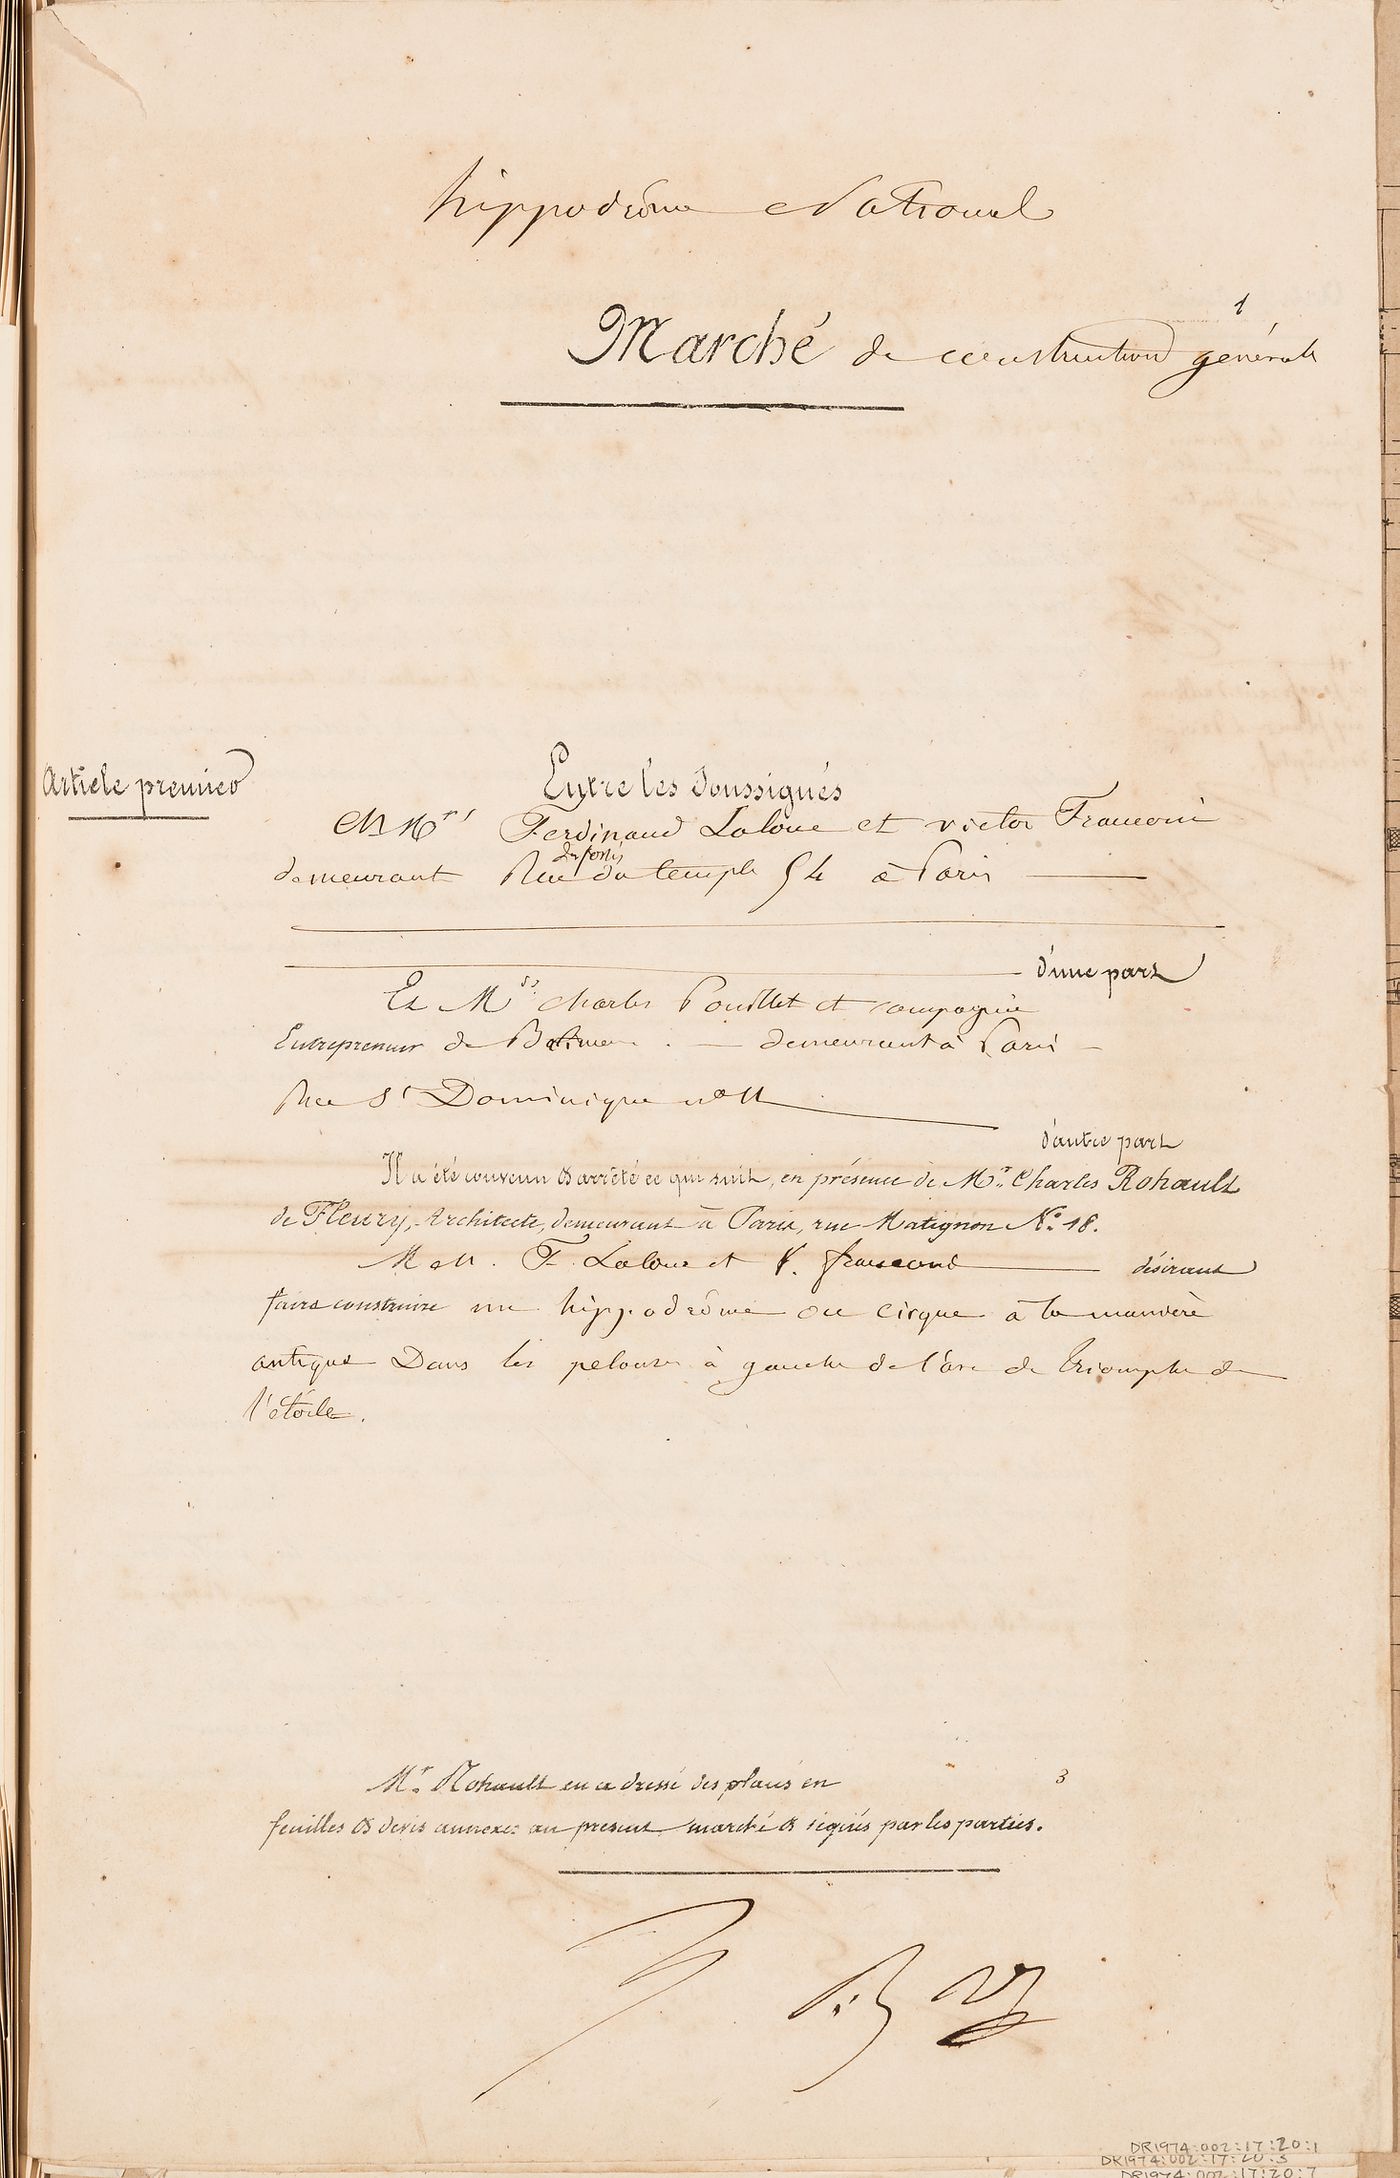 hippodrôme National
1
Marché de construction générale
Article premier
Entre les Soussignés
MMrs Ferdinand Laloue et victor Franconi
des fossés
demeurant Rue du temple 54 à Paris
d'une part
Et Mrs Charles Pouillet et compagnie
Entrepreneur de Batimens demeurant à Paris
Rue St Dominique no 11
d'autre part
Il a été convenu & arrêté ce qui suit, en présence de Mr. Charles Rohault
de Fleury, Architecte, demeurant à Paris, rue Matignon No. 18.
M et M. F. Laloue et V. franconi désirant
faire construire un hippodrôme ou cirque à la manière
antique Dans les pelouses à gauche de l'arc de triomphe de
l'étoile.
Mr. Rohault en a dressé des plans en 3
feuilles & devis annexés au présent marché & signés par les parties.
DR1974:002:17:20:1
DR1974:002:17:20:3
DR1974:002:17:20:7